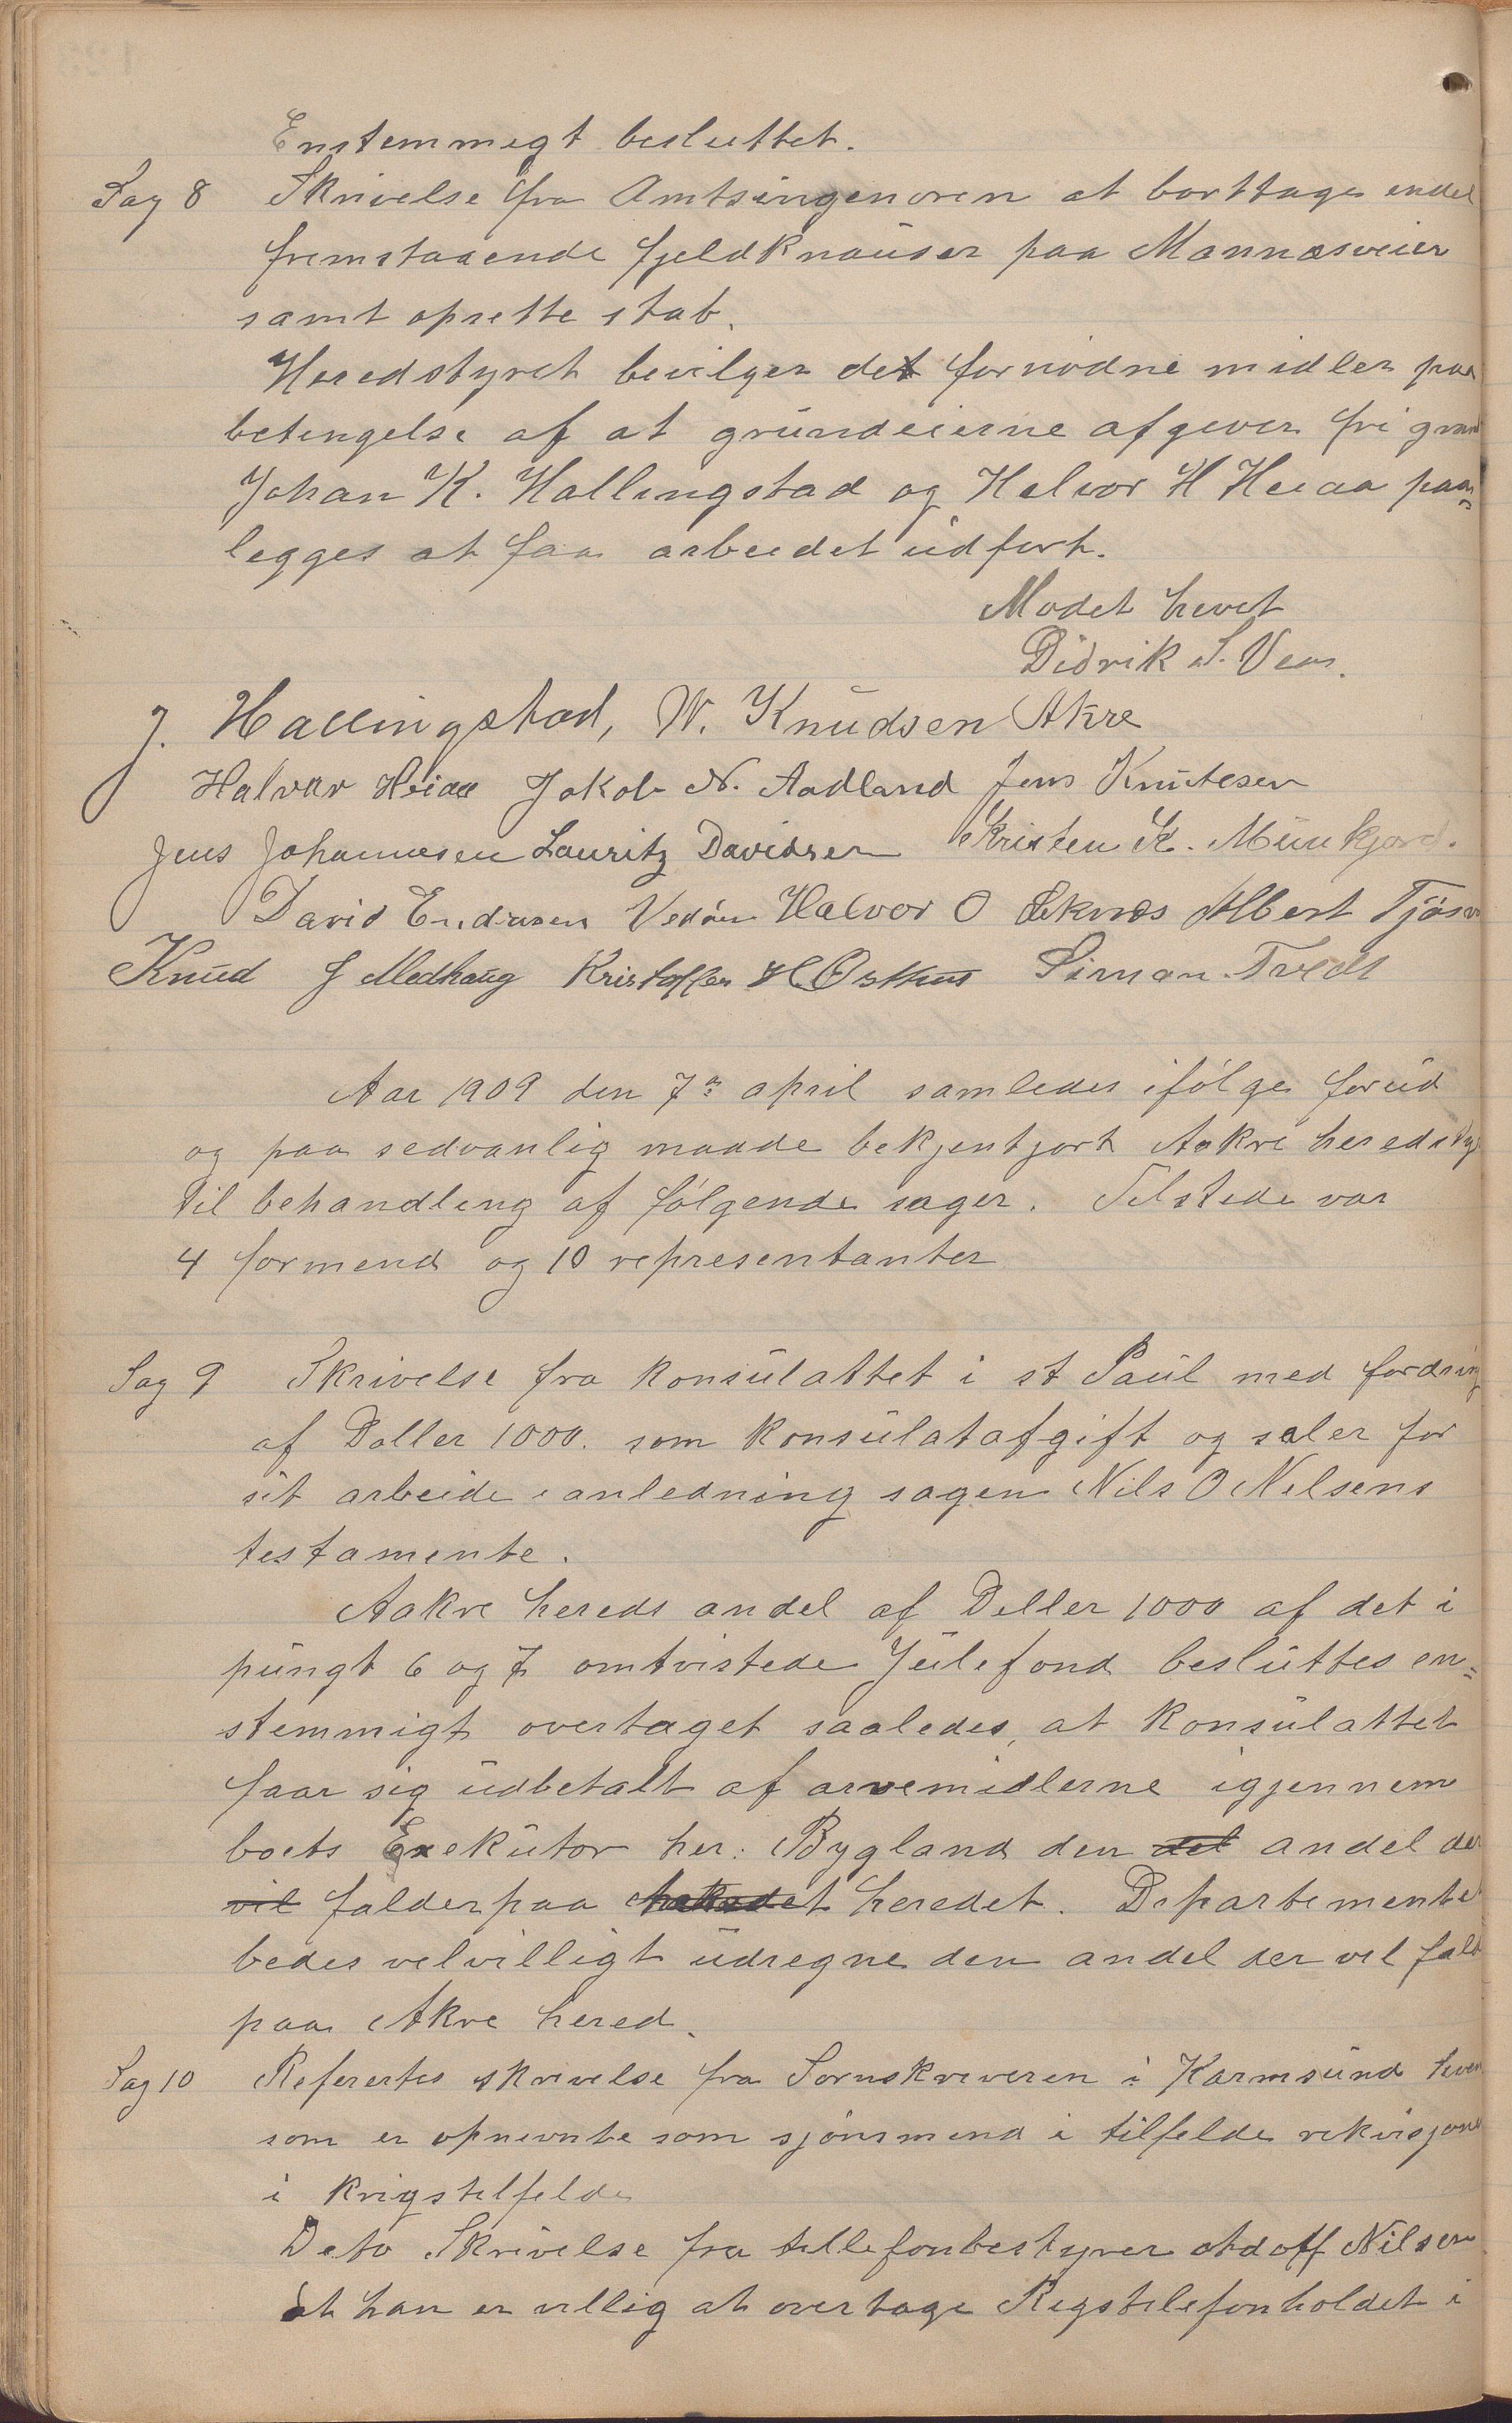 Enstemmegt besluttet.
Sag 8 Skrivelse fra Amtsingenøren at borttage endel
fremstaaende fjeldknauser paa Mannæsveien
samt oprette stab.
Heredstyret bevilger det fornødne midler paa
betengelse af at grundeierne afgever fri grun
Johan K. Hallingstad og Helvor H Heiaa paa=
legges at faa arbeidet udført.
Mødet hevet
Didrik S. Vea.
J. Hallingstad, W. Knudsen Akre
Halvar Heiaa Jakob N. Aadland Jens Knutesen
Jens Johannesen Lauritz Davidsen Kristen K. Munkjord.
David Endresen Vedøen Halvor O Liknes Albert Tjøsv
Knud J Medhaug Kristoffer H. Østhus Simon Tvedt
Aar 1909 den 7de april samledes ifølge forud
og paa sedvanlig maade bekjentgjort Aakre heredsty
til behandleng af følgende sager. Telstede var
4 formend og 10 representanter
Sag 9 Skrivelse fra konsulattet i st Paul med fordring
af Doller 1000. som konsulatafgift og saler for
sit arbeide i anledning sagen Nils O Nelsens
testamente.
Aakre hereds andel af Doller 1000 af det i
pungt 6 og 7 omtvistede Julefond besluttes en=
stemmigt overtaget saaledes, at konsulattet
faar sig udbetalt af arvemidlerne igjennem
boets Exekutor her: Bygland den del andel der
vil falder paa heredet. Departemente
bedes velvilligt udregne den andel der vil fald
paa Akre hered.
Sag 10 Referertes skrevelse fra Sornskreveren i Karmsund hvem
som er opnevnte som sjønsmend i tilfelde rekvisjone
i krigstelfelde
Deto Skrivelse fra tellefonbestyrer Nilsen
at han er vellig at overtage Rigstelefonholdet i